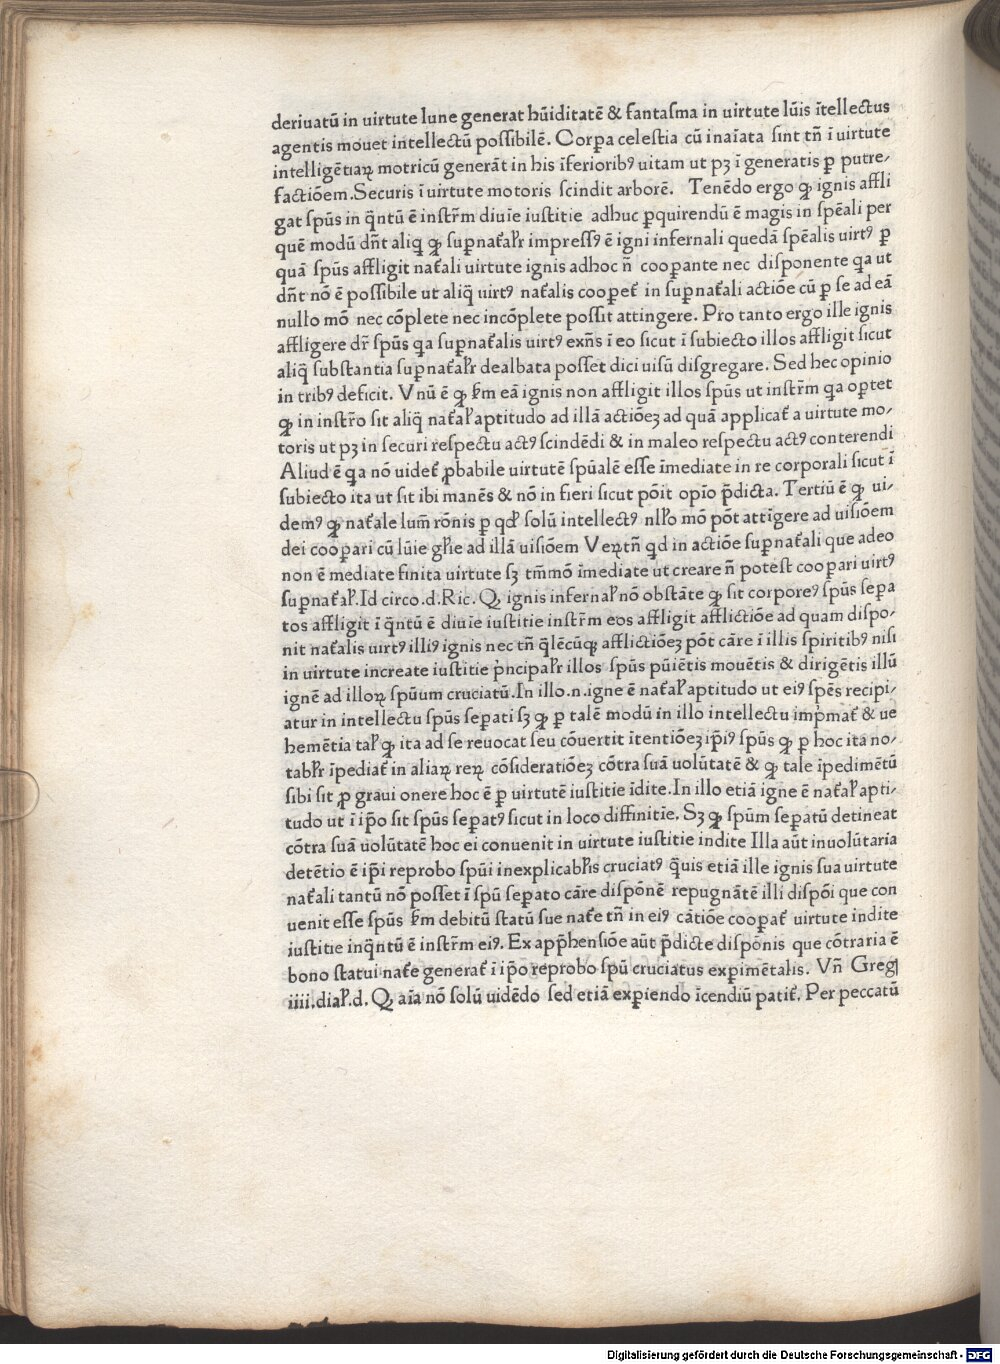 deriuatū in uirtute lune generat hūiditatē & fantasma in uirtute lūis ītellectus
agentis mouet intellectū possibilē. Corꝑa celestia cū inaīata sint tñ ī uirtute
intelligētiaꝝ motricū generāt in his īferioribꝰ uitam ut pꝫ ī generatis ꝑ putre⸗
factiōem. Securis ī uirtute motoris scindit arborē. Tenēdo ergo ꝙ ignis affli
gat spūs in q̄ntū ē instr̄m diuīe iustitie adhuc ꝑquirendū ē magis in spēali per
quē modū dn̄t aliq ꝙ supnat̄alr̄ impressꝰ ē igni infernali quedā spēalis uirtꝰ ꝑ
quā spūs affligit nat̄ali uirtute ignis adhoc n̄ cooꝑante nec disponente qa ut
dn̄t nō ē possibile ut aliq̄ uirtꝰ nat̄alis cooꝑet̄ in suꝑnat̄ali actiōe cū ꝑ se ad eā
nullo mō nec cōplete nec incōplete possit attingere. Pro tanto ergo ille ignis
affligere dr̄ spūs qa suꝑnat̄alis uirtꝰ exn̄s ī eo sicut ī subiecto illos affligit sicut
aliq̄ substantia suꝑnat̄alr̄ dealbata posset dici uisū disgregare. Sed hec opinio
in tribꝰ deficit. Vnū ē ꝙ ẜm eā ignis non affligit illos spūs ut instr̄m qa oꝑtet
ꝙ in instr̄o sit aliq̄ nat̄alꝭ aptitudo ad illā actiōeꝫ ad quā applicat̄ a uirtute mo⸗
toris ut pꝫ in securi respectu actꝰ scindēdi & in maleo respectu actꝰ conterendi
Aliud ē qa nō uidet̄ ꝓbabile uirtutē spūalē esse īmediate in re corporali sicut ī
subiecto ita ut sit ibi manēs & nō in fieri sicut pōit opīo p̄dicta. Tertiū ē ꝙ ui⸗
demꝰ ꝙ nat̄ale lum̄ rōnis ꝑ qd̛ solū intellectꝰ nllo mō pōt attīgere ad uisiōem
dei cooꝑari cū lūie gr̄ie ad illā uisiōem Veꝝtn̄ qd in actiōe suꝑnat̄ali que adeo
non ē mediate finita uirtute sꝫ tm̄mō īmediate ut creare n̄ potest cooꝑari uirtꝰ
suꝑnat̄alꝭ. Id circo .d. Ric. Q̨ ignis infernalꝭ nō obstāte ꝙ sit corporeꝰ spūs seꝑa
tos affligit ī q̄ntū ē diuīe iustitie instr̄m eos affligit afflictiōe ad quam dispo⸗
nit nat̄alis uirtꝰ illiꝰ ignis nec tn̄ q̄lēcūqꝫ afflictiōeꝫ pōt cāre ī illis spiritibꝰ nisi
in uirtute increate iustitie pͥncipalr̄ illos spūs pūiētis mouētis & dirigētis illū
ignē ad illoꝝ spūum cruciatū. In illo .n. igne ē nat̄alꝭ aptitudo ut eiꝰ spēs recipi⸗
atur in intellectu spūs seꝑati sꝫ ꝙ ꝑ talē modū in illo intellectu impͥmat̄ & ue
hemētia talꝭ ꝙ ita ad se reuocat seu cōuertit ītentiōeꝫ ip̄iꝰ spūs ꝙ ꝑ hoc ita no⸗
tablr̄ īpediat̄ in aliaꝝ reꝝ cōsideratiōeꝫ cōtra suā uolūtatē & ꝙ tale īpedimētū
sibi sit ꝓ graui onere hoc ē ꝑ uirtutē iustitie īdite. In illo etiā igne ē nat̄alꝭ apti⸗
tudo ut ī ip̄o sit spūs seꝑatꝰ sicut in loco diffinitie. Sꝫ ꝙ spūm seꝑatū detineat
cōtra suā uolūtatē hoc ei conuenit in uirtute iustitie indite Illa aūt inuolūtaria
detētio ē ip̄i reprobo spūi inexplicablr̄is cruciatꝰ q̄uis etiā ille ignis sua uirtute
nat̄ali tantū nō posset ī spū seꝑato cāre dispōnē repugnātē illi dispōi que con
uenit esse spūs ẜm debitū statū sue nat̄e tn̄ in eiꝰ cātiōe cooꝑat̄ uirtute indite
iustitie inq̄ntū ē instr̄m eiꝰ. Ex app̄hensiōe aūt p̄dicte dispōnis que cōtraria ē
bono statui nat̄e generat̄ ī ip̄o reprobo spū cruciatus exꝑimētalis. Vn̄ Greg
iiii. dialꝭ. d. Q̨ aīa nō solū uidēdo sed etiā exꝑiendo īcendiū patit̄. Per peccatū
Digitalisierung gefördert durch die Deutsche Forschungsgemeinschaft - DFG